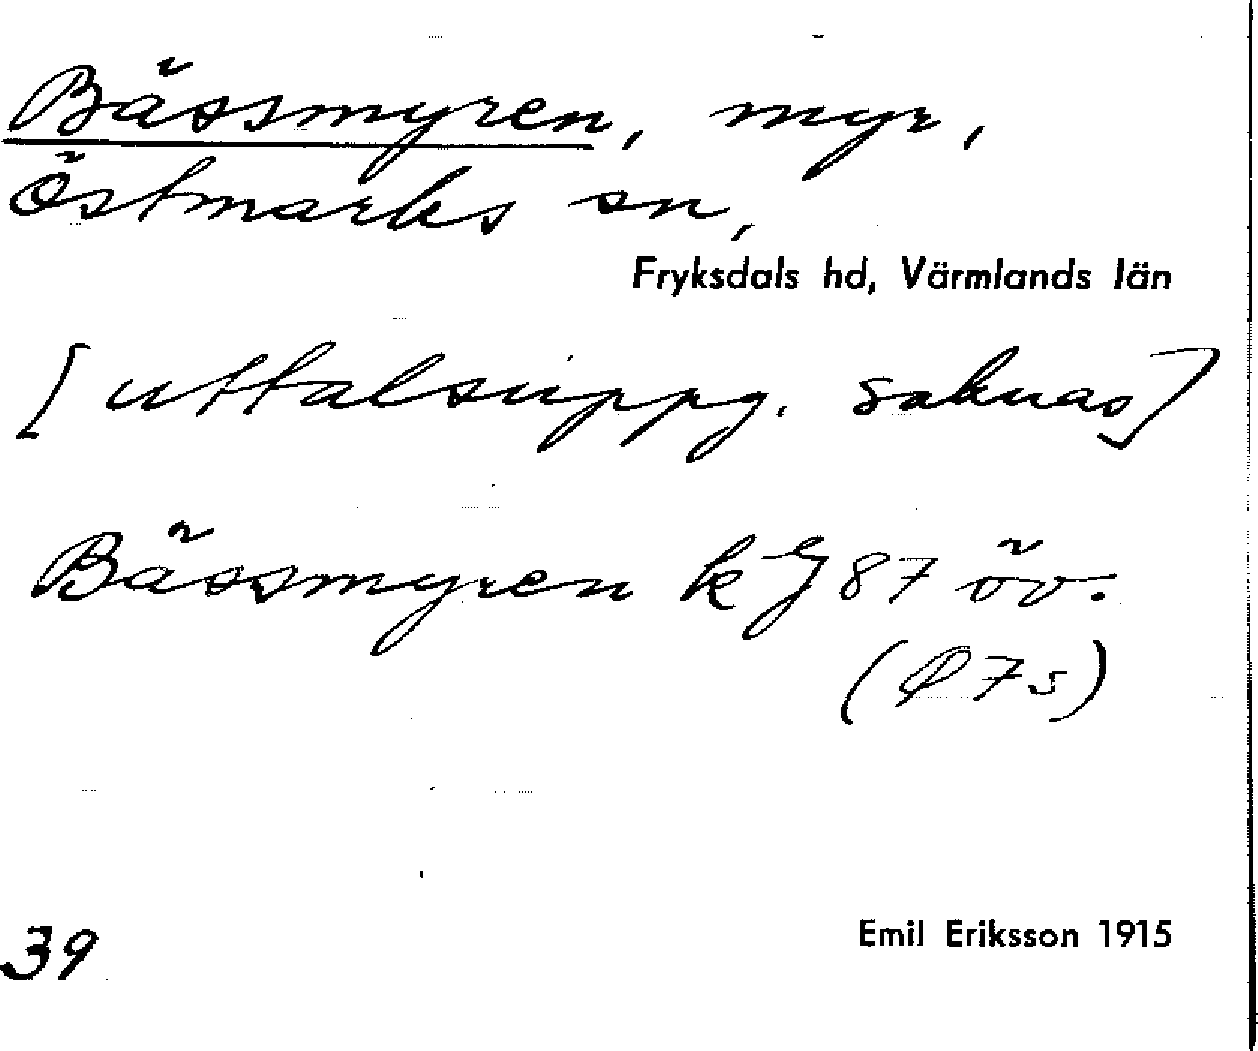 Bässmyren, myr,
Östmarks sn,
Fryksdals hd, Värmlands län
[uttalsuppg. saknas]
Bässmyren kg 87 öv.
(Ø 7 s)
39
Emil Eriksson 1915